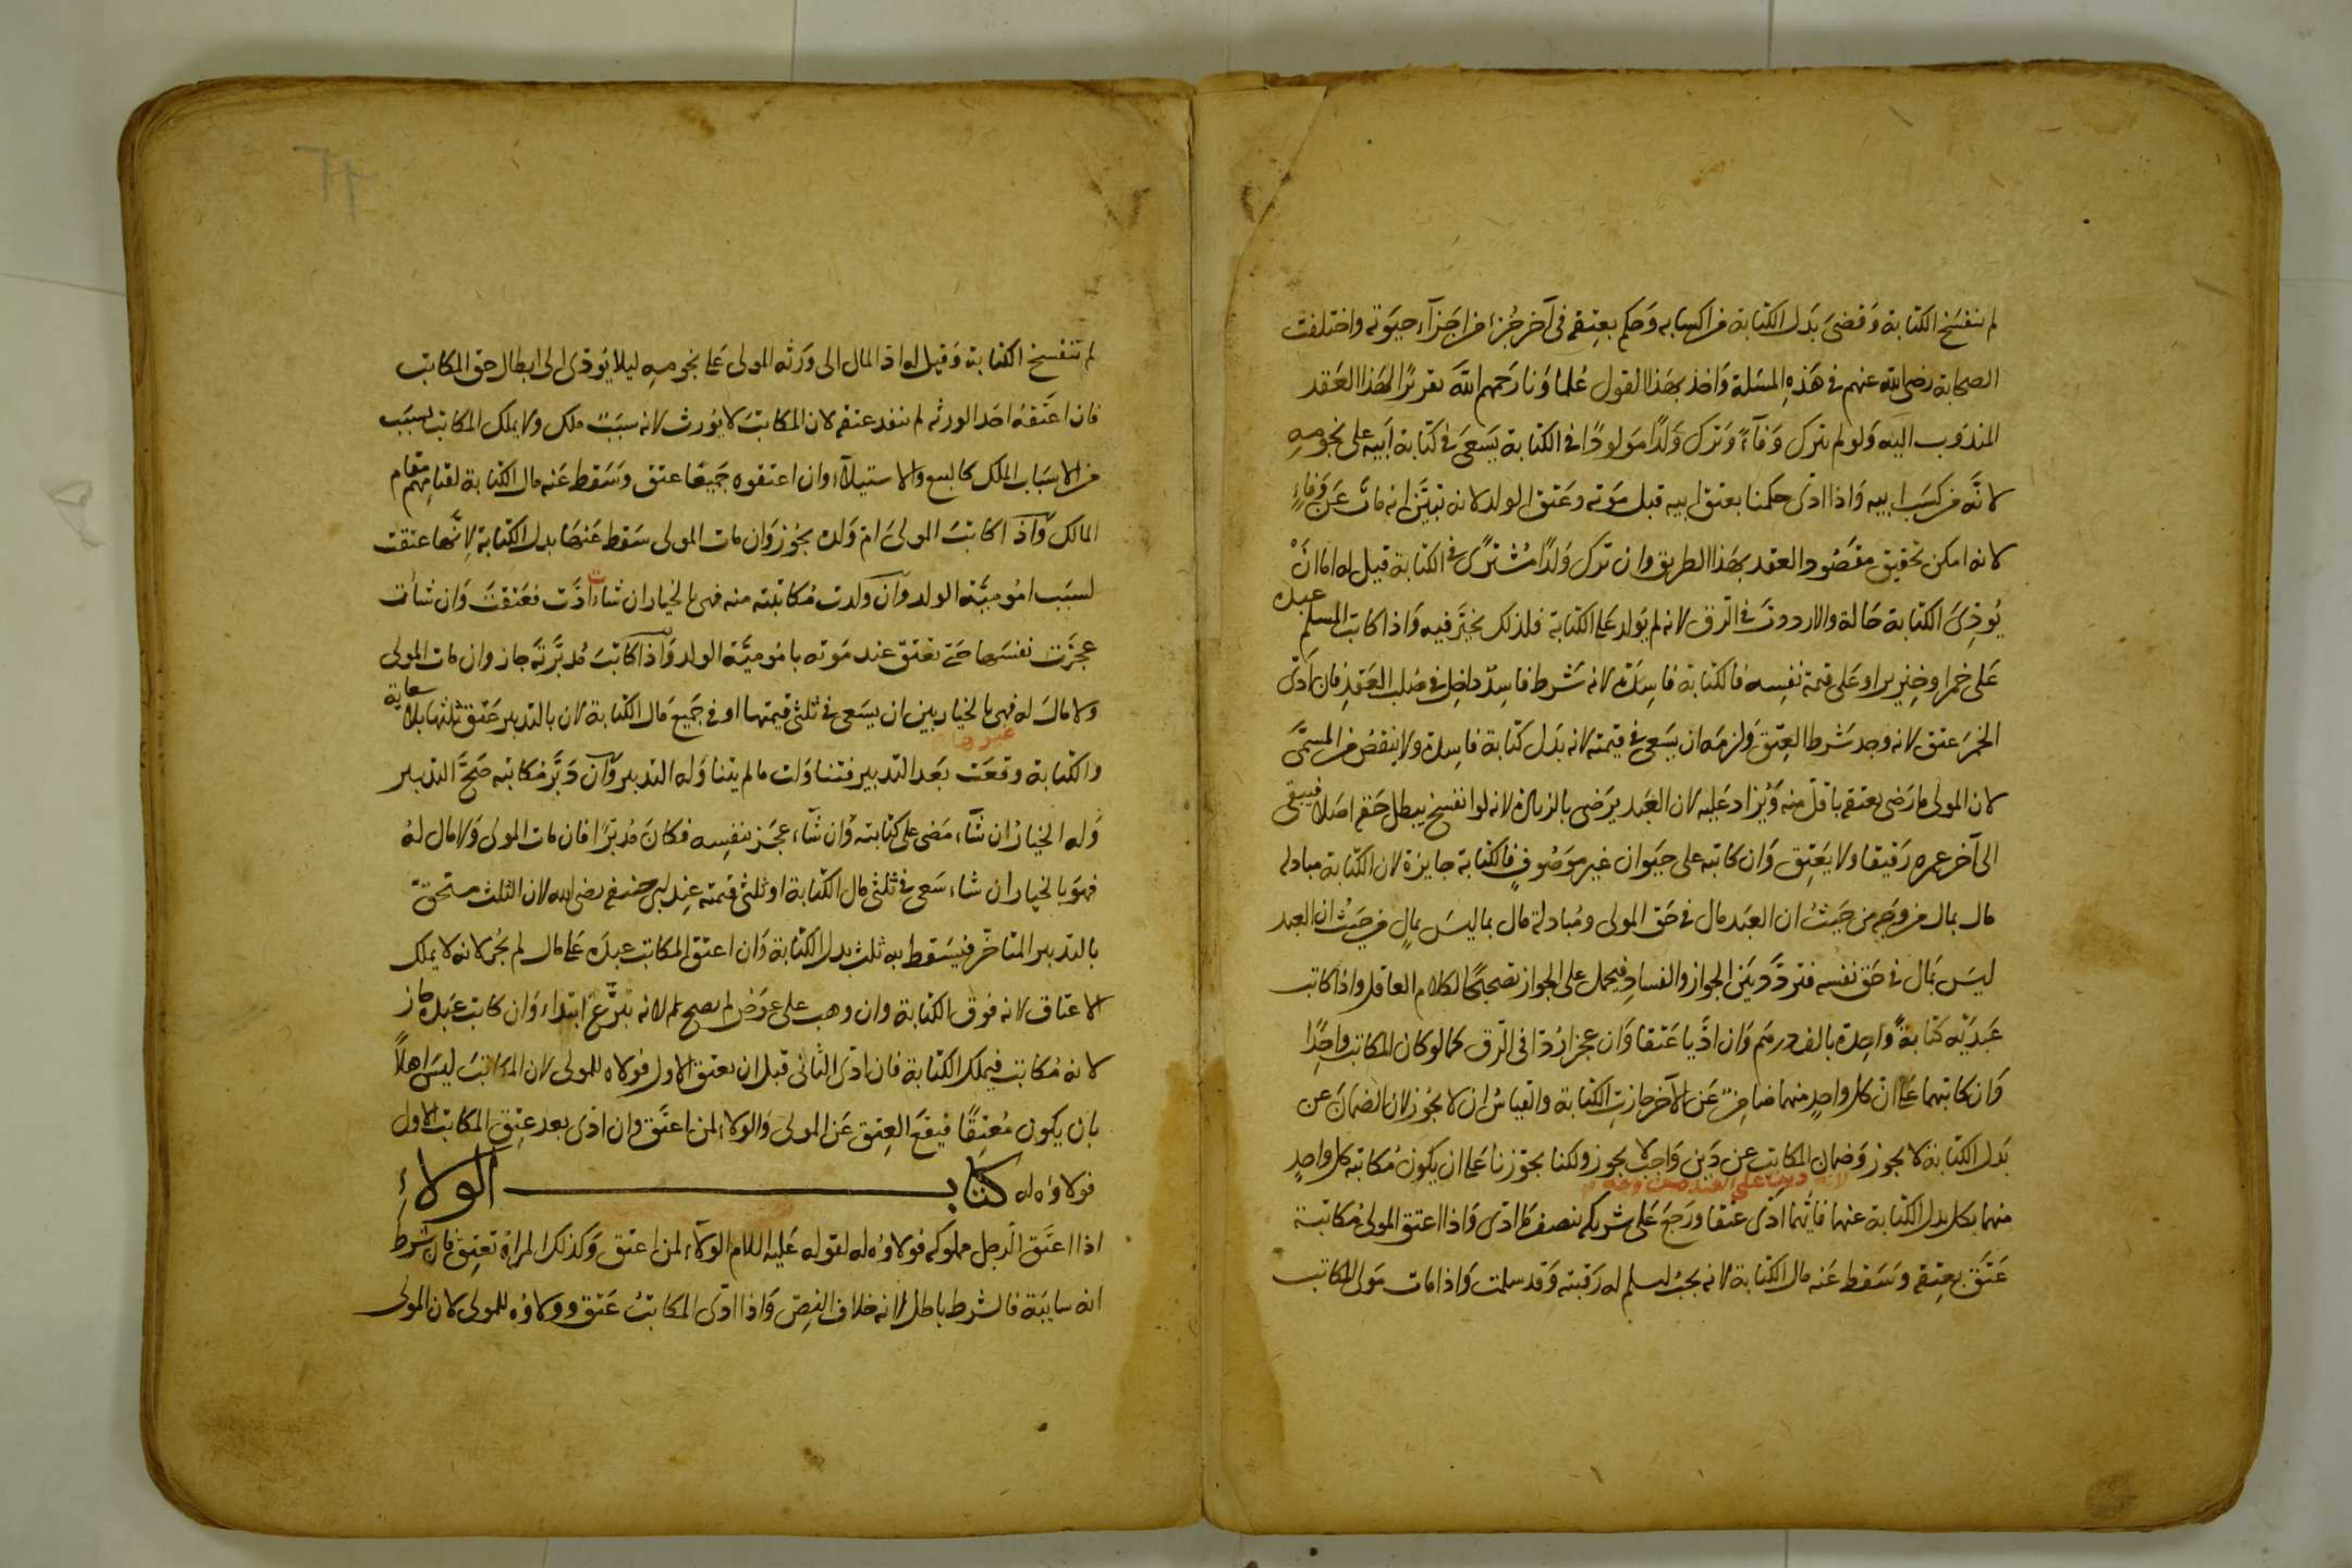 لم ينفسخ الكتابة وَقضىَ بَدَل الكتابة من اكسابه وَحكم بعِتقه فى آخر جُزءٍ من اجزآء حيوته واختلفت
الصحابة رضى الله عنهم فى هَذِهِ المسَلة وَاخذ بهَذا القول عُلماؤنا رَحمهم الله تقريرًا لهَذا العَقد
المندوب اليه وَلو لم يترك وَفآءً وَترك وَلدًا مَولودًا فى الكتابة يَسَعىَ فى كتابة اَبيه على نجومهِ
لانَّه من كسَب ابيه وَاذا ادّى حكمنا بعتق ابيه قبل مَوته وعَتق الولد لانه تبيَّن انه مات عَن وَفاءٍ
لانه امكن تحقيق مقصُود العقد بهَذا الطريق وان ترك وَلدًا مُشترًى فى الكتابة قيل له اما انْ
يُودِّىَ الكتابة حَالة والا رددتَ فى الرق لانه لم يَولد عَلى الكتابة فلذلك يخيَّر فيه وَاذا كاتب المسلم عبده
عَلى خمر او خنزير او عَلى قيمة نفِسه فالكتابة فاسِدَة لانه شَرط فاسِدٌ داخل فى صُلب العَقد فان ادّى
الخمرَ عتق لانه وجد شَرط العِتق وَلزمَه ان يَسَعى فى قيمته لانه بَدل كتابة فاسِدة ولا ينقصُ من المسمَّى
لان المولى ما رَضى بعتقه باقلّ منه وَيُزاد عَليه لان العَبد يرَضى بالزيادة لانه لوا نفسخ يبطل حَقه اصَلا فيبقى
الى آخر عمره رَقيقا ولا يَعَتِق وَان كاتبه على حيَوان غير موَصُوفٍ فالكتابة جايزة لان الكتابة مبادلة
مال بمال من وَجهٍ من حيَثُ ان العبَد مال فى حَق المولى ومُبادلة مال بما ليسَ بمالٍ من حيَثُ ان العبد
ليسَ بمَال فى حَق نفسه فتردَّد بيَن الجواز والفسادِ فيحمل على الجواز تصَحيحًا لكلام العاقل واذا كاتب
عَبدَيْه كتابةً وَاحِدة بالف درهَم وَان ادَّيا عَتقا وَان عجزا رُدّا فى الرق كما لو كان المكاتب واحِدًا
وَان كاتبهما عَلى ان كل واحدٍ منهما ضامِنٌ عَن الآخر جازت الكتابة والقياسُ ان لا يجُوز لان الضمانَ عن
بَدل الكتابة لا يجوز وَضمان المكاتب عن دَين وَاجب لا يجوز ولكنا يجوّزنا عَلى ان يكون مُكاتبه كل واحدٍ
لانه دين على العبد من وجه
منهما بكل بدل الكتابة عنهما فايُّهما ادَّى عَتقا ورَجعَ عَلى شريكه بنصف ما ادّى وَاذا اعتق المولى مُكاتبة
عَتَقَ بعِتقه وسَقط عَنه مال الكتابة لانه يجبُ ليسلم له رَقبته وَقد سلمت وَاذا مات مَولى المكاتب
لم تنفسخ الكتابة وَقيل له ادّ المال الى وَرثه المولى عَلى نجومهِ ليلا يُودّى الى ابطال حق المكاتب
فان اعَتقهُ احَد الورثه لم ينفذ عتقه لان المكاتبَ لا يُورث لانه سبَبَت ملك ولا يملك المكاتب بسَبَب
من الاسبَاب الملك كالبيع والاستيلآء وان اعتقوه جَميَعًا عتق وسَقط عَنه مال الكتابة لقيامِهم مقام
المالك وَاذا كاتبَ المولىَ امّ وَلده يجُوز وَان مات المولى سَقط عَنهَا بدل الكتابة لانَّها عتقت
لسبَب امُوميَّة الولد وَان ولدت مُكاتبته منه فهى بالخيار ان شاءت ادَّت فعَتقتَ وَان شأت
عجزَت نفسَها حَتى تعَتق عند مَوته بامُوميَّة الولد وَاذا كاتبَ مُدبَّرتَه جاز وان مات المولى
ولا مالَ له فهى بالخيار بين ان يسَعى فى ثلثى قيمتها او فى جَميع مَال الكتابة لان بالتدبير عَتق ثلثها بلا سعاية
غيرها
والكتابة وقعَت بَعد التدبير فتناوَلت ما لم يتناوَله التدبير وَان دَبَّر مكاتبه صَحَّ التدبير
وَله الخيارُ ان شآء مَضى على كتابته وَان شآء عجَّز نفِسه فكانَ مُدبَّرًا فان مات المولى وَلا مال لهُ
فهوَ بالخيار ان شاء سَعى فى ثلثى مال الكتابة او ثلثى قيمته عند ابى حنيفه رضى الله لان الثلث مستحق
بالتدبير المتاخّر فيسَقط به ثلث بدل الكتابة وَان اعتق المكاتب عبدَه عَلى مال لم يجُز لانه لا يملك
الاعتاق لانه فوق الكتابة وان وهب على عِوَض لم يصح لانه تبرُّع ابتداء وَان كاتب عَبده جاز
لانه مُكاتب فيملك الكتابة فان ادّى الثانى قبل ان يعتق الاول فولاه للمولى لان المكاتبَ ليسَ اهلاً
بان يكون مُعتِقًا فيقعَ العِتق عَن المولى وَالولاء لمن اعتَق وان ادّى بعد عتِق المكاتب الاول
فولاوه له كتاب الولاءِ
اذا اعتَق الرجل مملوكه فولاوُه له لقوله عَليه السلام الولآء لمن اعتق وَكذلك المراة تعتِق فان شرط
انه سايبَة فالشرط باطل لانه خلاف النِص وَاذا ادّى المكاتبُ عَتق وولاوُه للمولى لان المولى